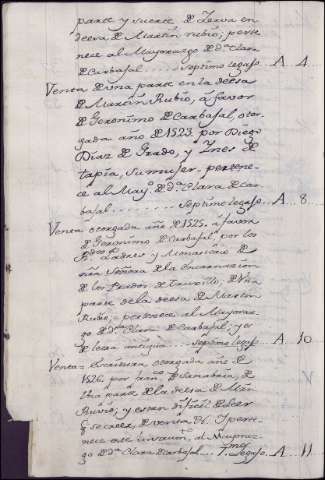 parte y suerte de Zerva en
deesa de Martin rubio; perte
nece al Mayorazgo de Dª Clara
de Carbajal ..... Septimo legajo.. A.. 4.
Venta de una parte en la deesa
de Martin Rubio, á favor
de Geronimo de Carbajal, otor
gada año de 1523. por Diego
Diaz de Prado, y Ynes de
tapia, su muger. pertene-
ce al Mayº de Dª Clara de Car-
bajal ........ Septimo legajo. A.. 8..
Venta otorgada año de 1525. á favor
de Geronimo de Carbajal, por los
Padres y Monasterio de
ñra Señora de la Encarnacion
de los de Truxillo, de una
parte de la deesa de Martin
Rubio = pertenece al Mayoraz-
go de Dª Clara de Carbajal; y es
de letra antigua ... Septimo legajo. A.. 10
Venta = Escritura otorgada año de
1526. por de
una parte de la deesa de Mrn
Rubio, y
de venta
nece al Mayoraz-
go de Dª Clara de Carbajal... 7mo Legajo.. A.. 11